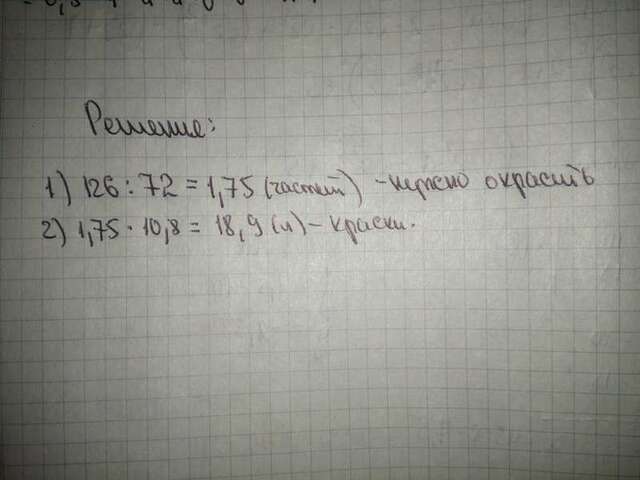 Решение:
1) 126 : 72 = 1,75 (частей) - нужно окрасить
2) 1,75 · 10,8 = 18,9 (л) - краски.